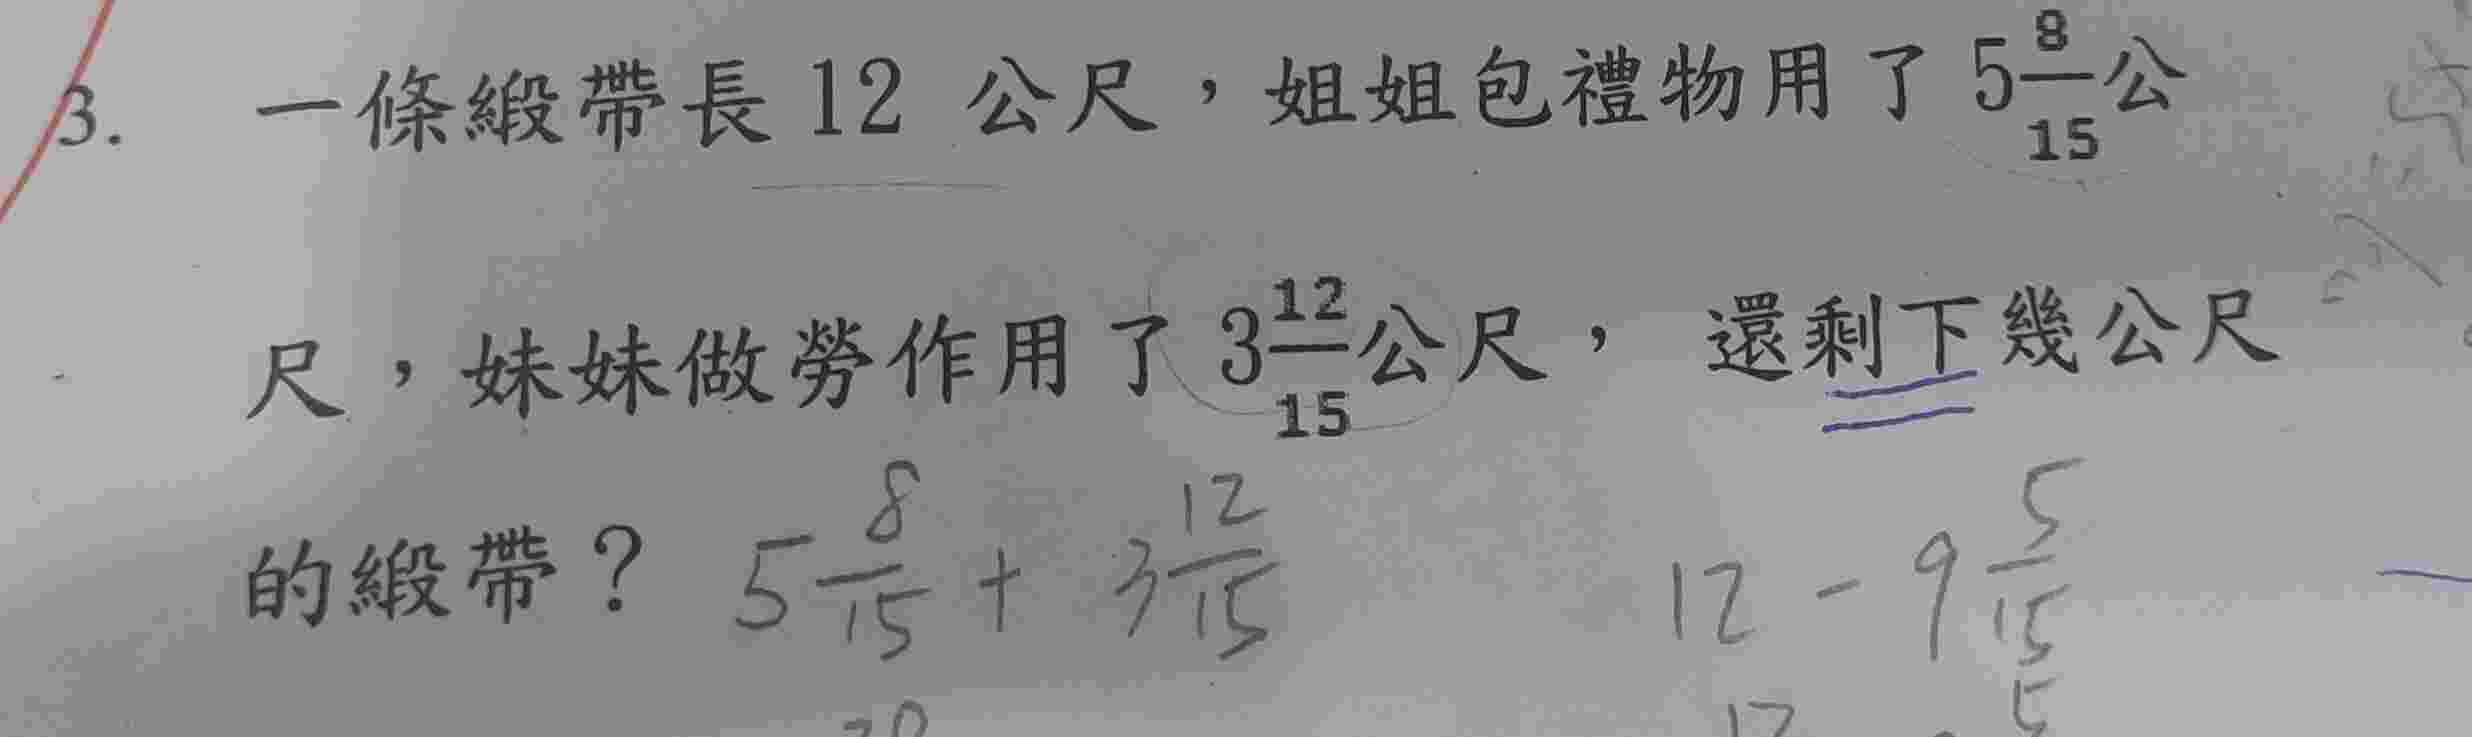 3. 一條緞帶長 12 公尺，姐姐包禮物用了 5 8/15 公
尺，妹妹做勞作用了 3 12/15 公尺， 還剩下幾公尺
的緞帶？ 5 8/15 + 3 12/15 12 - 9 5/15